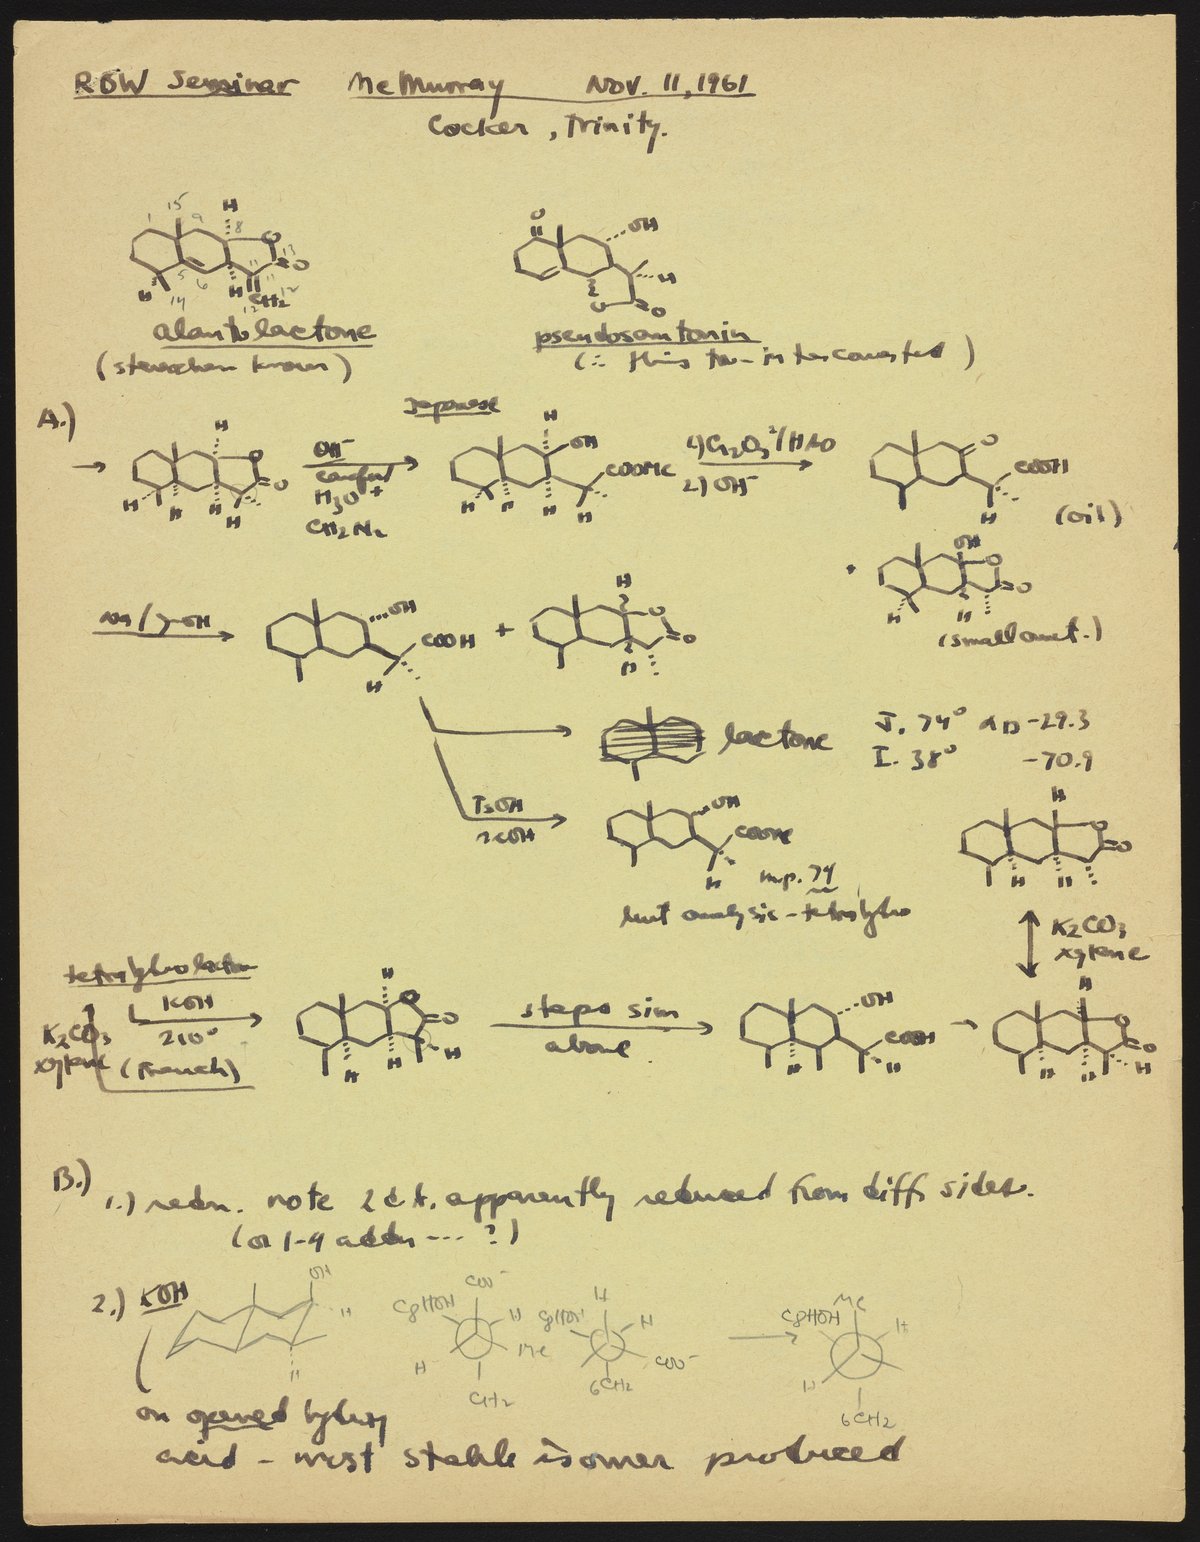 RBW Seminar McMurray Nov. 11, 1961
Cocker, Trinity.
15 H
1 9 8 O
13 O
5 6 11
H 14 H CH2 12
O OH
H
O O
alantolactone pseudosantonin
(stereochem known) (∴ this too - interconverted)
A.) Japanese
H O O H H H H
OH⁻
careful
H3O+
CH2N2
H OH COOMe H H H H
1.) Cr2O3 /HAO
2.) OH⁻
O COOH H
(oil)
+ OH O O H H
(small amt.)
Na / OH
OH COOH H
+ H O O H
lactone J. 74° αD -29.3
I. 38° -70.9
TsOH
OH COOMe H
m.p. 74
but analysis - tetrahydro
H O O H H
K2CO3
xylene
tetrahydrolactone
KOH
210°
(French)
K2CO3
xylene
H O O H H H
steps sim
above
OH COOH H H
H O O H H H
B.)
1.) redn. note 2 d.b. apparently reduced from diff. sides.
(or 1-4 addn --- ?)
2.) KOH
OH H H
COO⁻ C8HOH H H Me CH2
H C8HOH H COO⁻ 6CH2
Me C8HOH H H 6CH2
on opened hydroxy
acid - most stable isomer produced